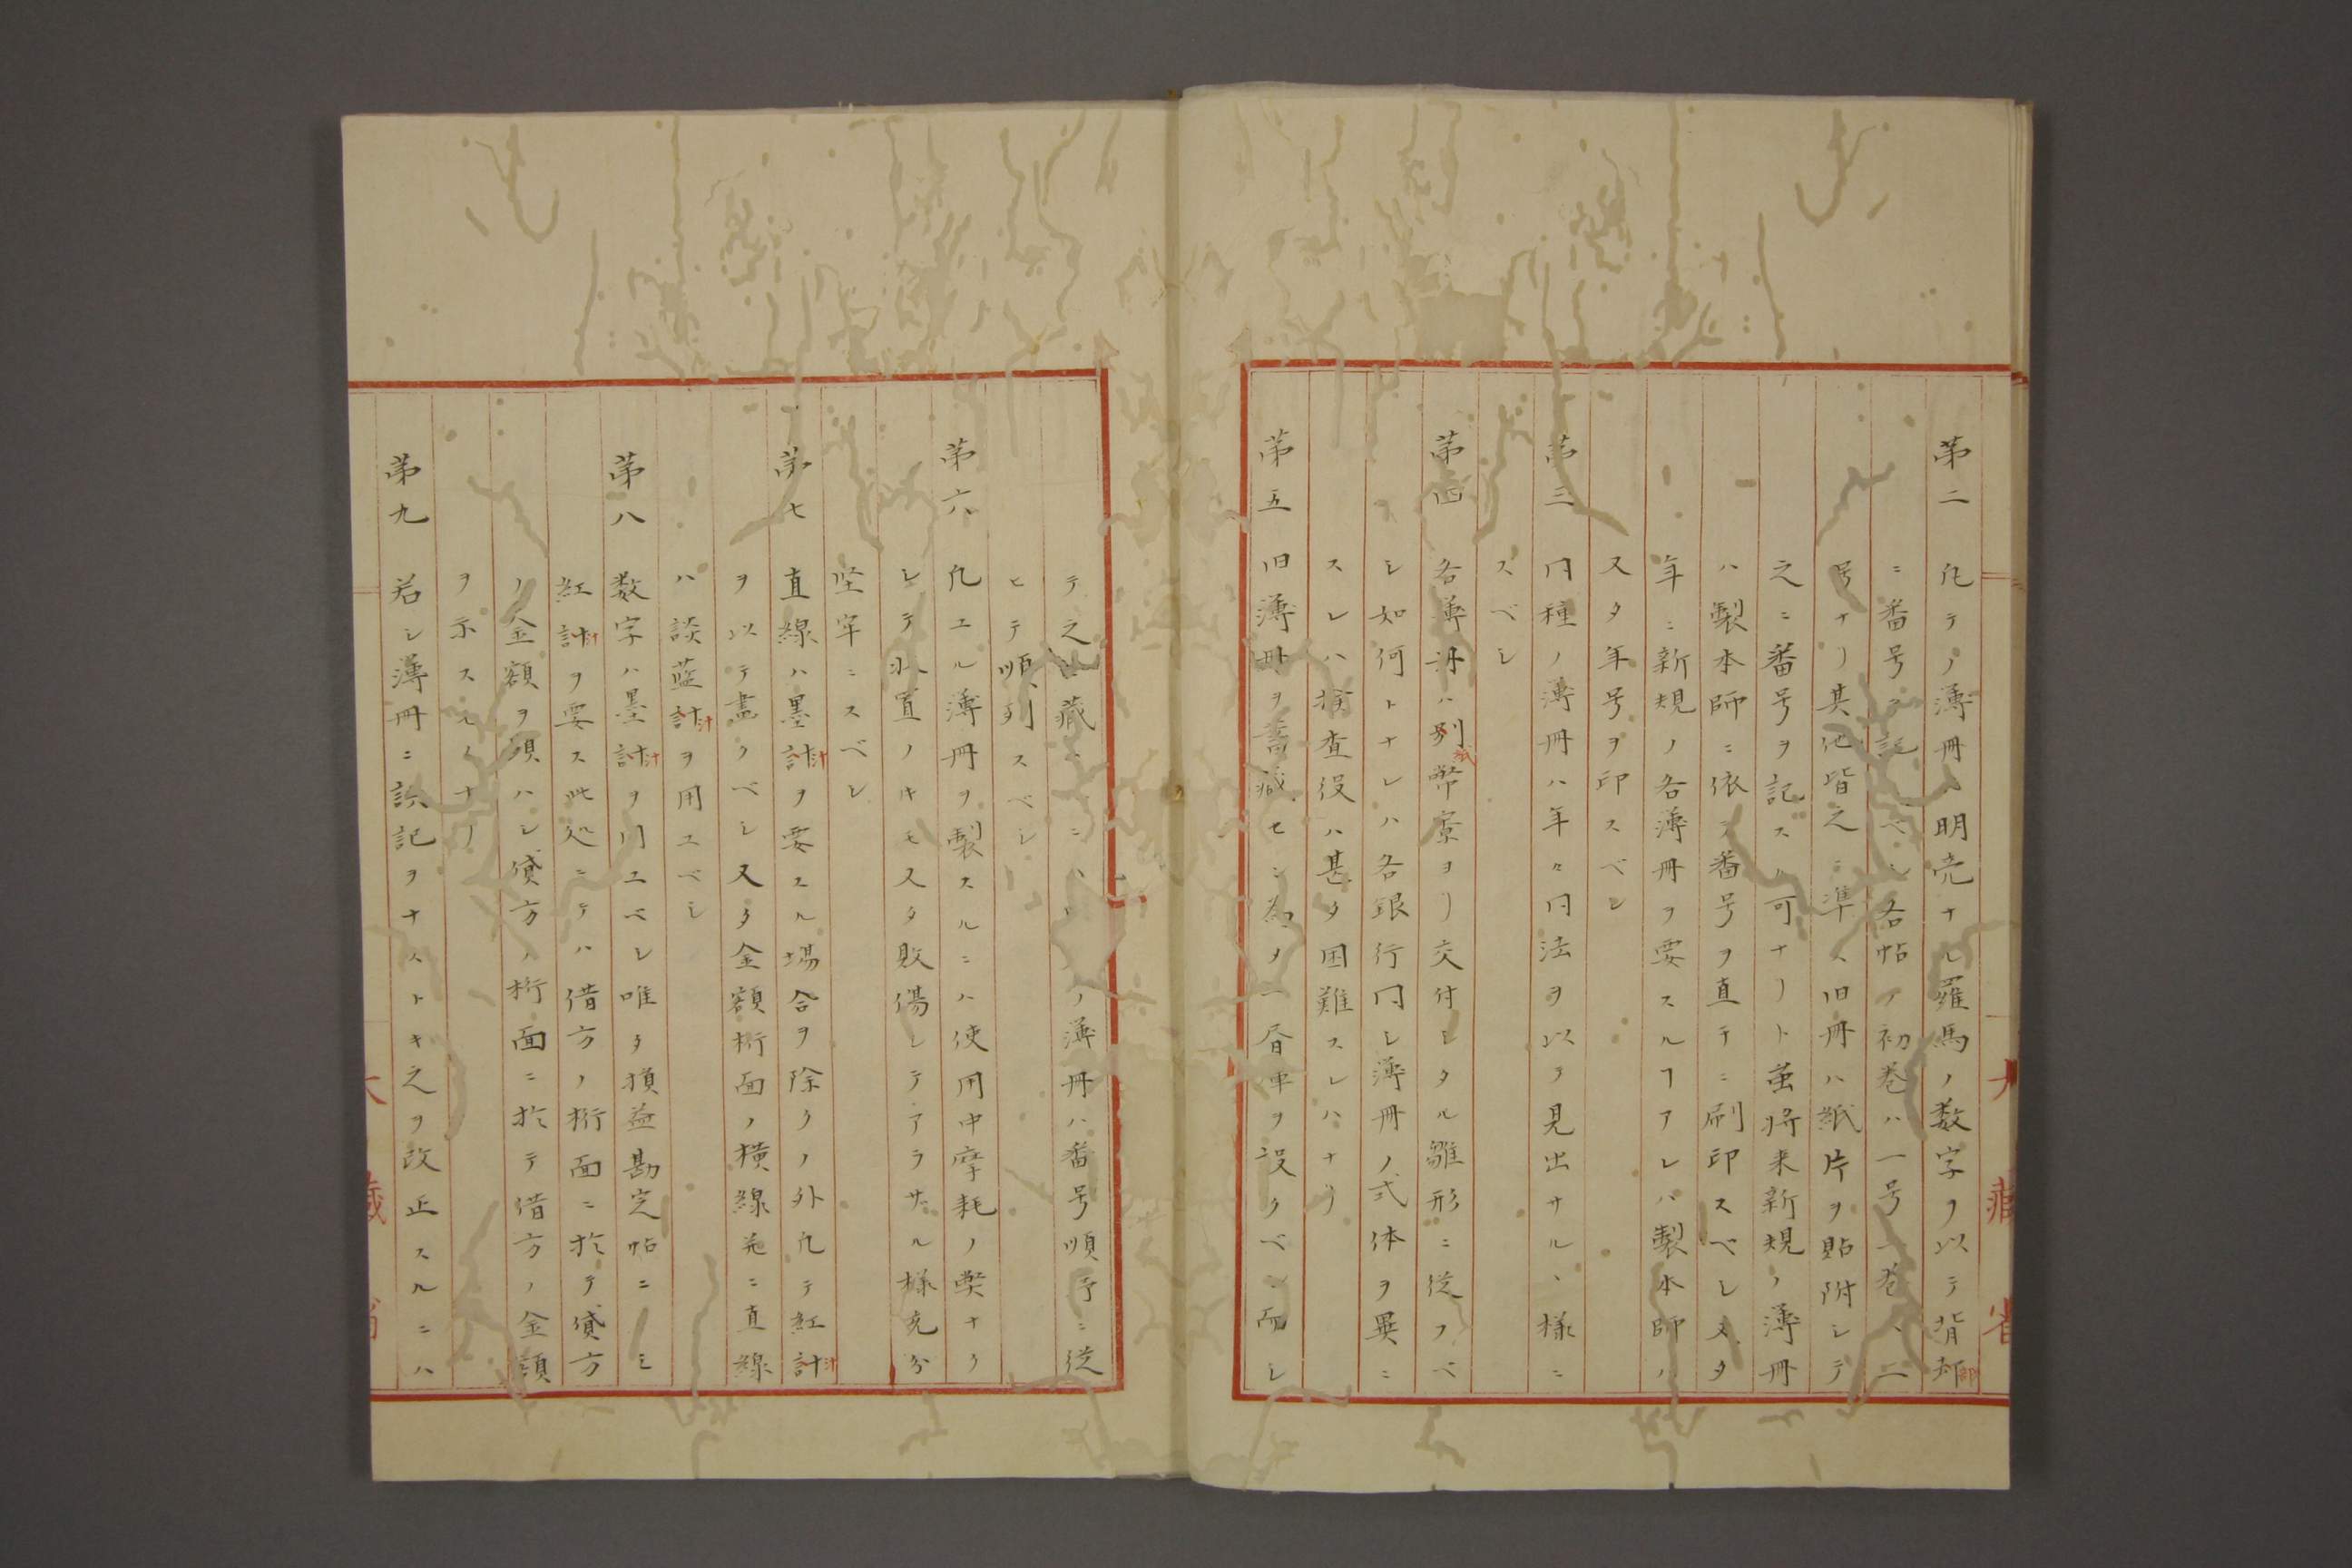 第二 凡テノ薄冊ハ明亮ナル羅馬ノ数字ヲ以テ背部
ニ番号ヲ記スベシ各帖ノ初巻ハ一号二巻ハ二
号ナリ其他皆之ニ準ス旧冊ハ紙片ヲ貼附シテ
之ニ番号ヲ記スル可ナリト虽将来新規ノ薄冊
ハ製本師ニ依テ番号ヲ直チニ刷印スベシ又タ
年ニ新規ノ各薄冊ヲ要スルヿアレバ製本師ハ
又タ年号ヲ印スベシ
第三 同種ノ薄冊ハ年々同法ヲ以テ見出サルヽ様ニ
スベシ
第四 各薄冊ハ別紙幣寮ヨリ交付シタル雛形ニ従フベ
シ如何トナレハ各銀行同シ薄冊ノ式体ヲ異ニ
スレハ検査役ハ甚タ困難スレハナリ
第五 旧薄冊ヲ蓄蔵セン為ノ一倉庫ヲ設クベシ而シ
テ之
蔵
ノ薄冊ハ番号順序ニ従
ヒテ順列スベシ
第六 凡ユル薄冊ヲ製スルニハ使用中摩耗ノ獘ナク
シテ
置ノキモ又タ敗傷シテアラザル様充分
堅牢ニスベシ
第七 直線ハ墨汁ヲ要スル場合ヲ除クノ外凡テ紅汁
ヲ以テ畫クベシ又タ金額桁面ノ横線並ニ直線
ハ談藍汁ヲ用ユベシ
第八 数字ハ墨汁ヲ用ユベシ唯タ損益勘定帖ニノミ
紅汁ヲ要ス此処ニテハ借方ノ桁面ニ於テ貸方
ノ金額ヲ顕ハシ貸方ノ桁面ニ於テ借方ノ金額
ヲ示スモノナリ
第九 若シ薄冊ニ誤記ヲナストキ之ヲ改正スルニハ
大蔵省
大蔵省